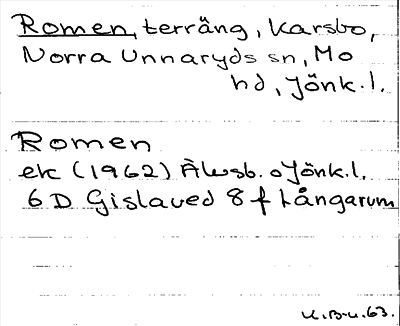 Romen, terräng, Karsbo,
Norra Unnaryds sn, Mo
hd, Jönk. l.
Romen
ek (1962) Älvsb. o Jönk. l.
6 D Gislaved 8 f Långarum
U.B-u.63.